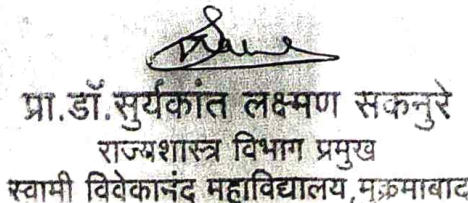 प्रा.डॉ.सुर्यकांत लक्ष्मण सकनुरे
राज्यशास्त्र विभाग प्रमुख
स्वामी विवेकानंद महाविद्यालय,मुक्रमाबाद